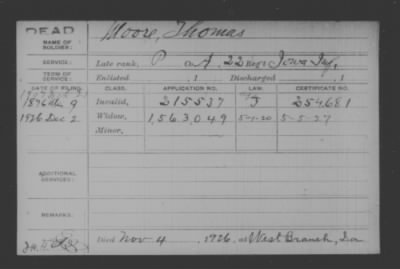 DEAD
NAME OF SOLDIER: Moore, Thomas
SERVICE: Late rank, P Co A, 22 Reg't Iowa Inf,
TERM OF SERVICE: Enlisted , 1 Discharged , 1
DATE OF FILING. CLASS. APPLICATION NO. LAW. CERTIFICATE NO.
1876 9 Invalid, 215537 254681
1926 Dec 2 Widow, 1,563,049 5-1-20 5-5-27
Minor,
ADDITIONAL SERVICES:
REMARKS:
Died Nov 4, 1926, at West Branch, Ia